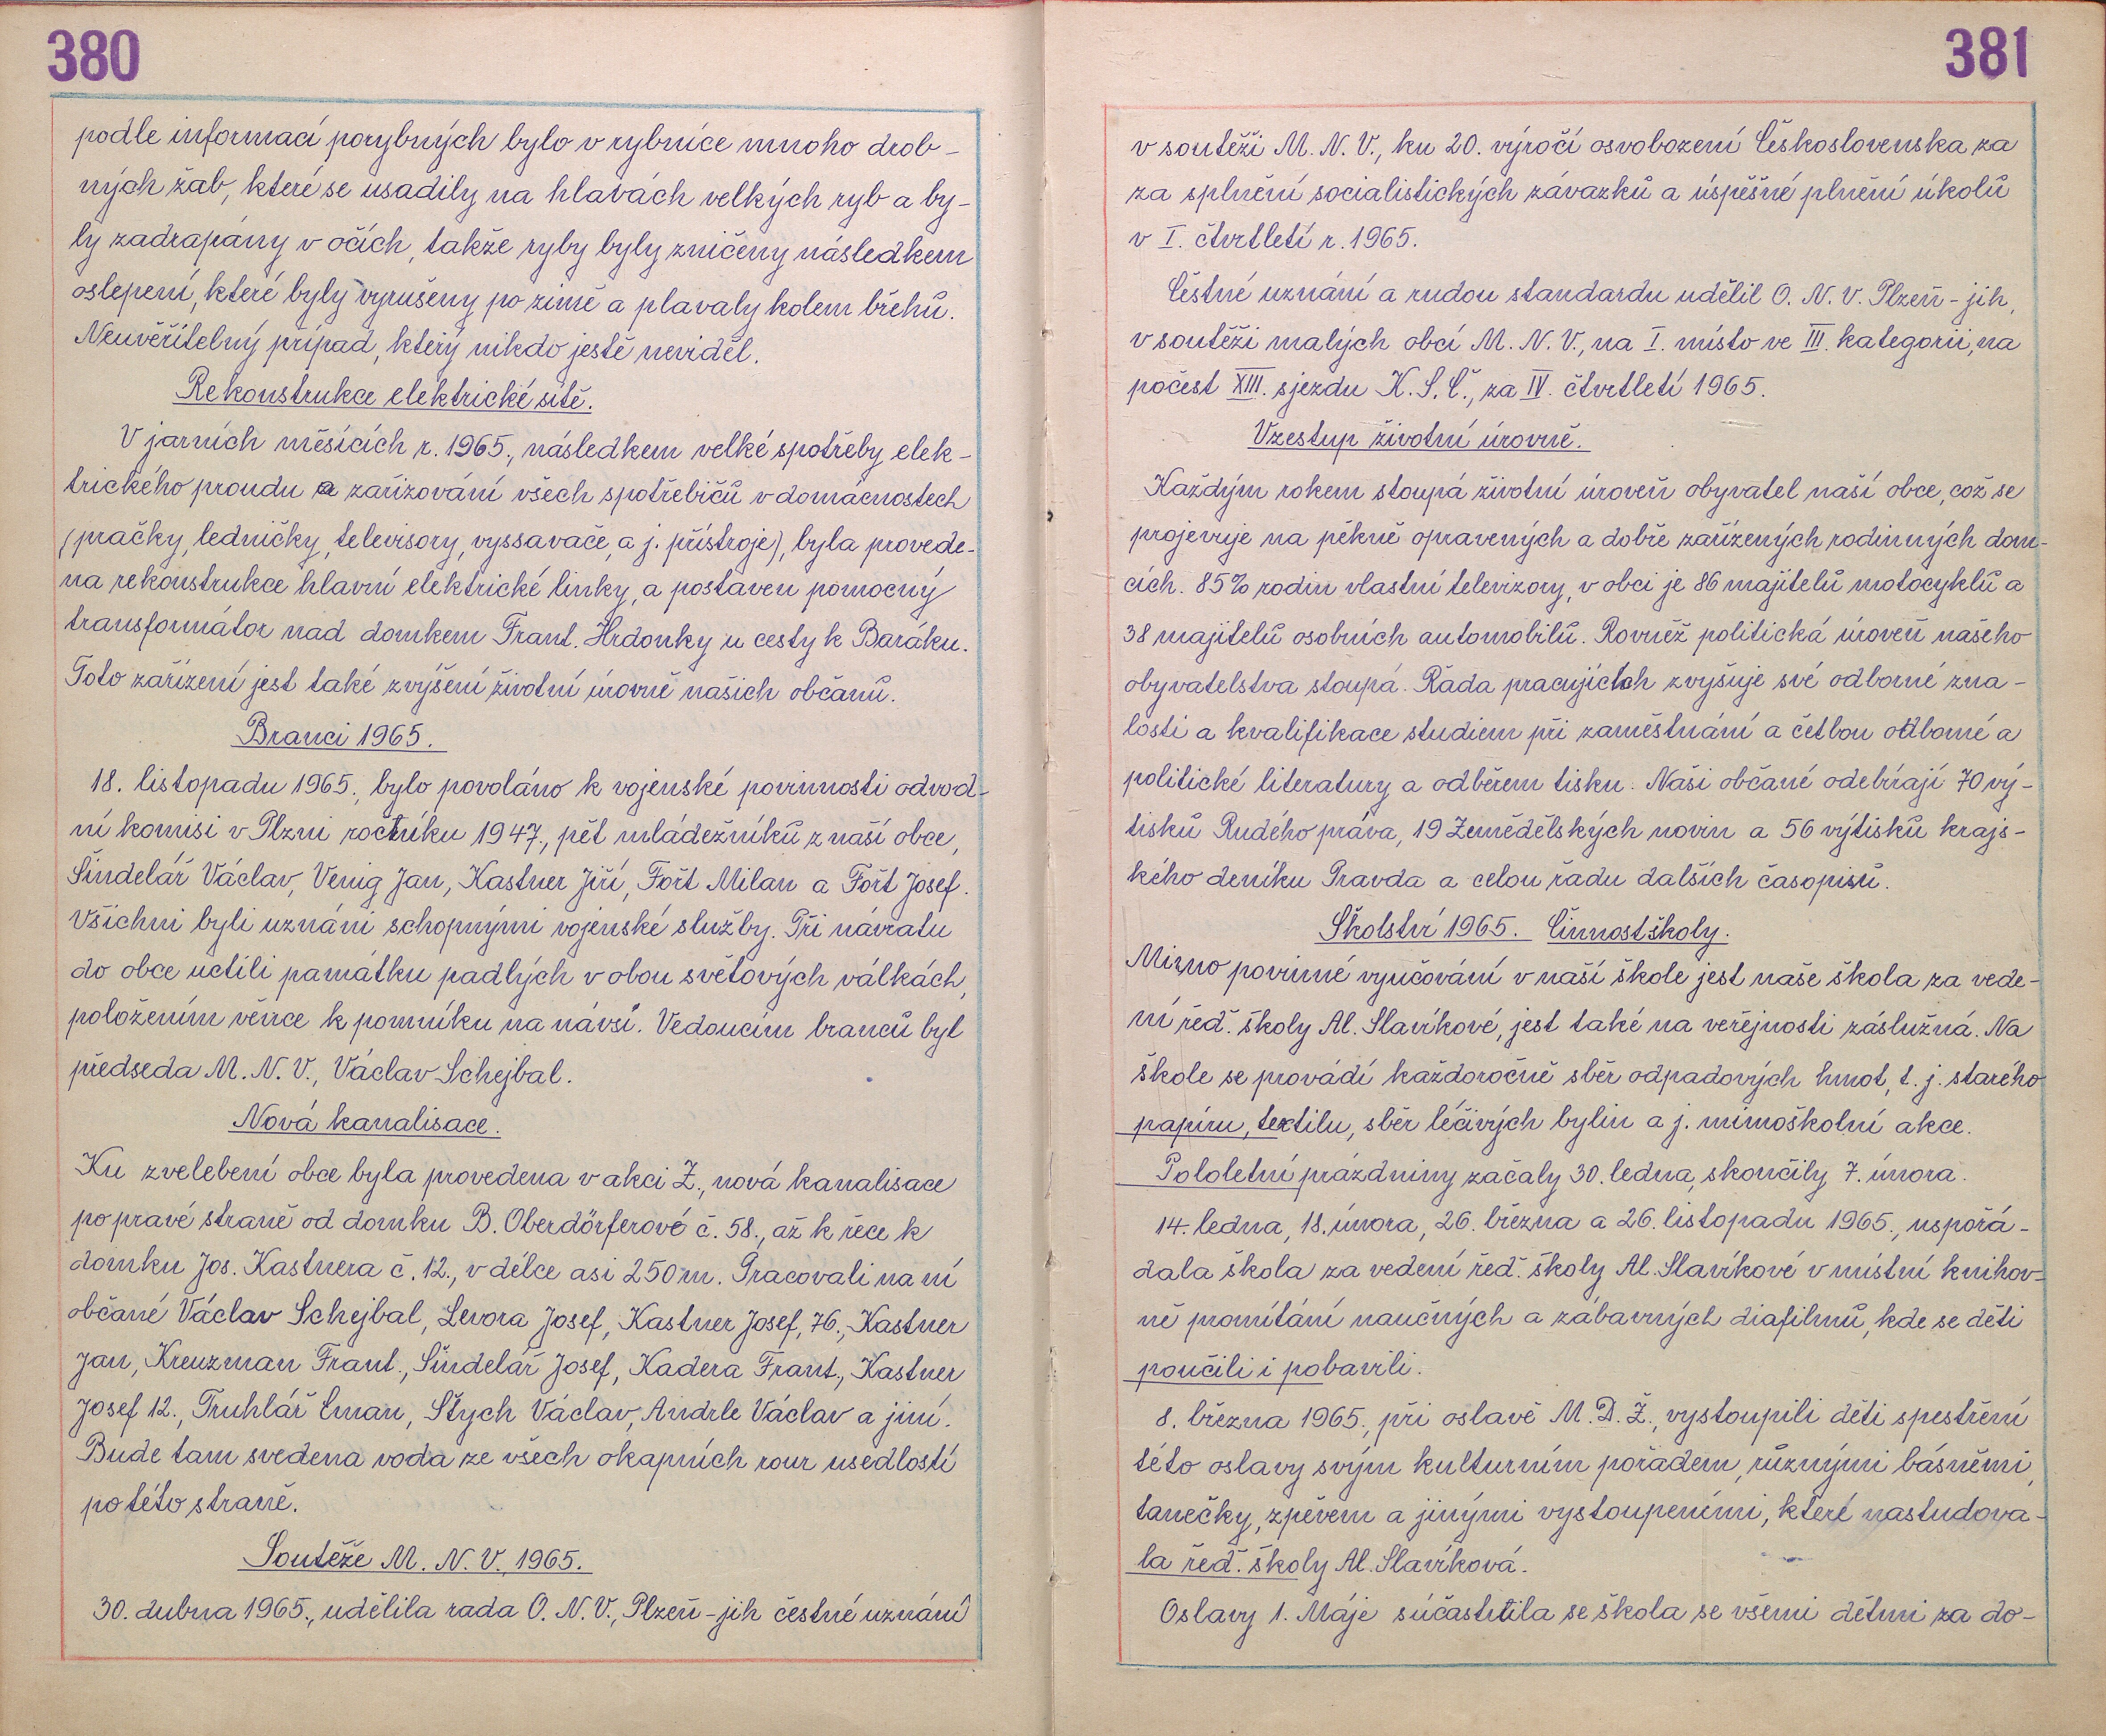 380
podle informací porybných bylo v rybníce mnoho drob-
ných žab, které se usadily na hlavách velkých ryb a by-
ly zadrapány v očích, takže ryby byly zničeny následkem
oslepení, které byly vyrušeny po zimě a plavaly kolem břehů.
Neuvěřitelný případ, který nikdo ještě neviděl.
Rekonstrukce elektrické sítě.
V jarních měsících r. 1965., následkem velké spotřeby elek-
trického proudu a zařizování všech spotřebičů v domácnostech
(pračky, ledničky, televisory, vyssavače, a j. přístroje), byla provede-
na rekonstrukce hlavní elektrické linky, a postaven pomocný
transformátor nad domkem Frant. Hrdonky u cesty k Baráku.
Toto zařízení jest také zvýšení životní úrovně našich občanů.
Branci 1965.
18. listopadu 1965., bylo povoláno k vojenské povinnosti odvod-
ní komisi v Plzni ročníku 1947., pět mládežníků z naší obce,
Šindelář Václav, Venig Jan, Kastner Jiří, Fořt Milan a Fořt Josef.
Všichni byli uznáni schopnými vojenské služby. Při návratu
do obce uctili památku padlých v obou světových válkách,
položením věnce k pomníku na návsi. Vedoucím branců byl
předseda M. N. V., Václav Schejbal.
Nová kanalisace.
Ku zvelebení obce byla provedena v akci Z., nová kanalisace
po pravé straně od domku B. Oberdörferové č. 58., až k řece k
domku Jos. Kastnera č. 12., v délce asi 250 m. Pracovali na ní
občané Václav Schejbal, Levora Josef, Kastner Josef, 76., Kastner
Jan, Kreuzman Frant., Šindelář Josef, Kadera Frant., Kastner
Josef 12., Truhlář Eman, Štych Václav, Andrle Václav a jiní.
Bude tam svedena voda ze všech okapních rour usedlostí
po této straně.
Soutěže M. N. V. 1965.
30. dubna 1965., udělila rada O. N. V., Plzeň-jih čestné uznání
381
v soutěži M. N. V., ku 20. výročí osvobození Československa za
za splnění socialistických závazků a úspěšné plnění úkolů
v I. čtvrtletí r. 1965.
Čestné uznání a rudou standardu udělil O. N. V. Plzeň-jih,
v soutěži malých obcí M. N. V., na I. místo ve III. kategorii, na
počest XIII. sjezdu K. S. Č., za IV. čtvrtletí 1965.
Vzestup životní úrovně.
Každým rokem stoupá životní úroveň obyvatel naší obce, což se
projevuje na pěkně opravených a dobře zařízených rodinných dom-
cích. 85% rodin vlastní televizory, v obci je 86 majitelů motocyklů a
38 majitelů osobních automobilů. Rovněž politická úroveň našeho
obyvatelstva stoupá. Řada pracujících zvyšuje své odborné zna-
losti a kvalifikace studiem při zaměstnání a četbou odborné a
politické literatury a odběrem tisku. Naši občané odebírají 70 vý-
tisků Rudého práva, 19 Zemědělských novin a 56 výtisků krajs-
kého deníku Pravda a celou řadu dalších časopisů.
Školství 1965. Činnost školy.
Mimo povinné vyučování v naší škole jest naše škola za vede-
ní řed. školy Al. Slavíkové, jest také na veřejnosti záslužná. Na
škole se provádí každoročně sběr odpadových hmot, t. j. starého
papíru, textilu, sběr léčivých bylin a j. mimoškolní akce.
Pololetní prázdniny začaly 30. ledna, skončily 7. února.
14. ledna, 18. února, 26. března a 26. listopadu 1965., uspořá-
dala škola za vedení řed. školy Al. Slavíkové v místní knihov-
ně promítání naučných a zábavných diafilmů, kde se děti
poučili i pobavili.
8. března 1965., při oslavě M. D. Ž., vystoupili děti spestření
této oslavy svým kulturním pořadem, různými básněmi,
tanečky, zpěvem a jinými vystoupeními, které nastudova-
la řed. školy Al. Slavíková.
Oslavy 1. Máje súčastnila se škola se všemi dětmi za do-